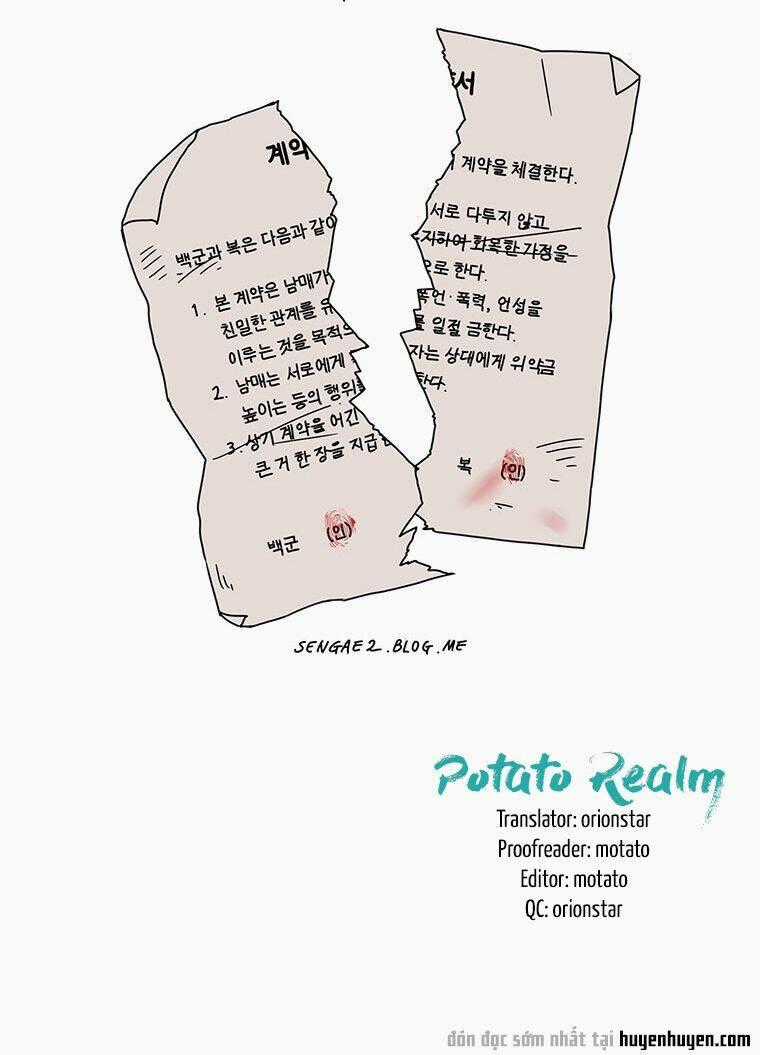 계약
서
백군과 복은 다음과 같이
계약을 체결한다.
1. 본 계약은 남매가
서로 다투지 않고
친밀한 관계를 유
지하여 화목한 가정을
이루는 것을 목적으
로 한다.
2. 남매는 서로에게
폭언·폭력, 언성을
높이는 등의 행위를
일절 금한다.
3. 상기 계약을 어긴
자는 상대에게 위약금
큰 거 한 장을 지급
한다.
백군 (인)
복 (인)
SENGAE2.BLOG.ME
Potato Realm
Translator: orionstar
Proofreader: motato
Editor: motato
QC: orionstar
đón đọc sớm nhất tại huyenhuyen.com